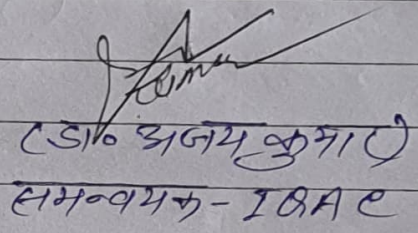 (डा० अजय कुमार)
समन्वयक - IQAC